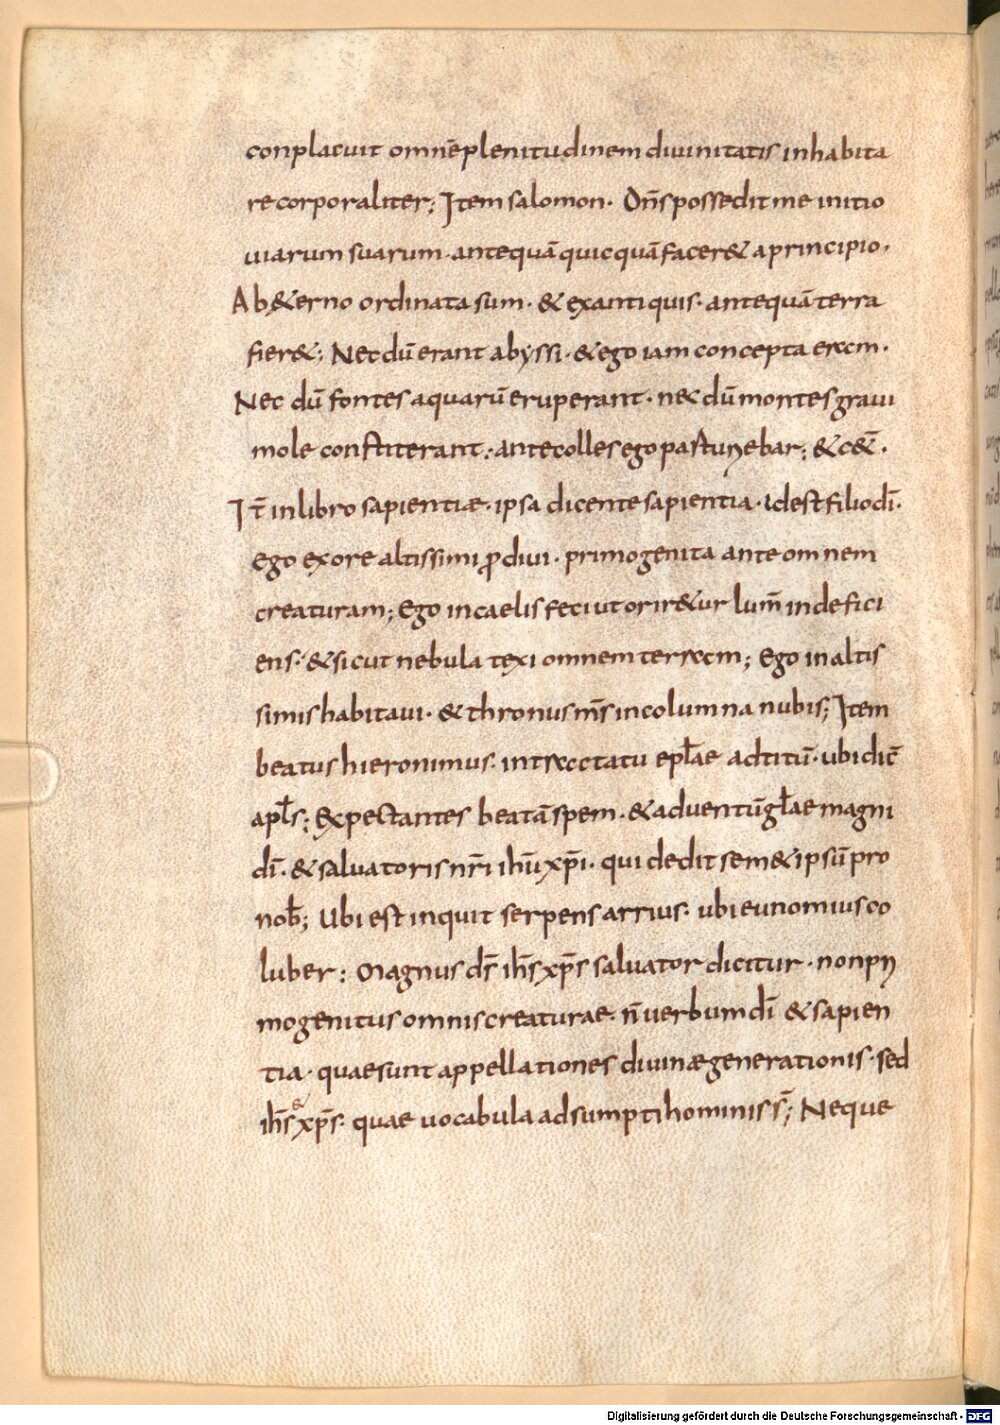 conplacuit omnē plenitudinem divinitatis inhabita
re corporaliter; Item salomon. Dñs possedit me initio
viarum suarum. antequā quicquā facer& a principio.
Ab &erno ordinata sum. & ex antiquis. antequā terra
fier&; Nec dū erant abyssi. & ego iam concepta eram.
Nec dū fontes aquarū eruperant. nec dū montes gravi
mole constiterant; ante colles ego parturiebar; & c&̄.
It̄ in libro sapientiæ. ipsa dicente sapientia. id est filio dī.
ego ex ore altissimi ꝓdivi. primogenita ante omnem
creaturam; Ego in caelis feci ut orir&ur lum̄ indefici
ens. & sicut nebula texi omnem terram; Ego in altis
simis habitavi. & thronus m̄s in columna nubis; Item
beatus hieronimus. in tractatu epłae ad titū. ubi dic̄
apłs; Expectantes beatā spem. & adventū głae magni
dī. & salvatoris nr̄i ihū xp̄i. qui dedit sem&ipsū pro
nob̄; Ubi est inquit serpens arrius. ubi eunomius co
luber; Magnus ds̄ ihs̄ xp̄s salvator dicitur. non pri
mogenitus omnis creaturae. n̄ verbum dī & sapien
tia. quae sunt appellationes divinæ generationis. sed
ihs̄ & xp̄s. quae vocabula adsumpti hominis s̄; Neque
Digitalisierung gefördert durch die Deutsche Forschungsgemeinschaft - DFG